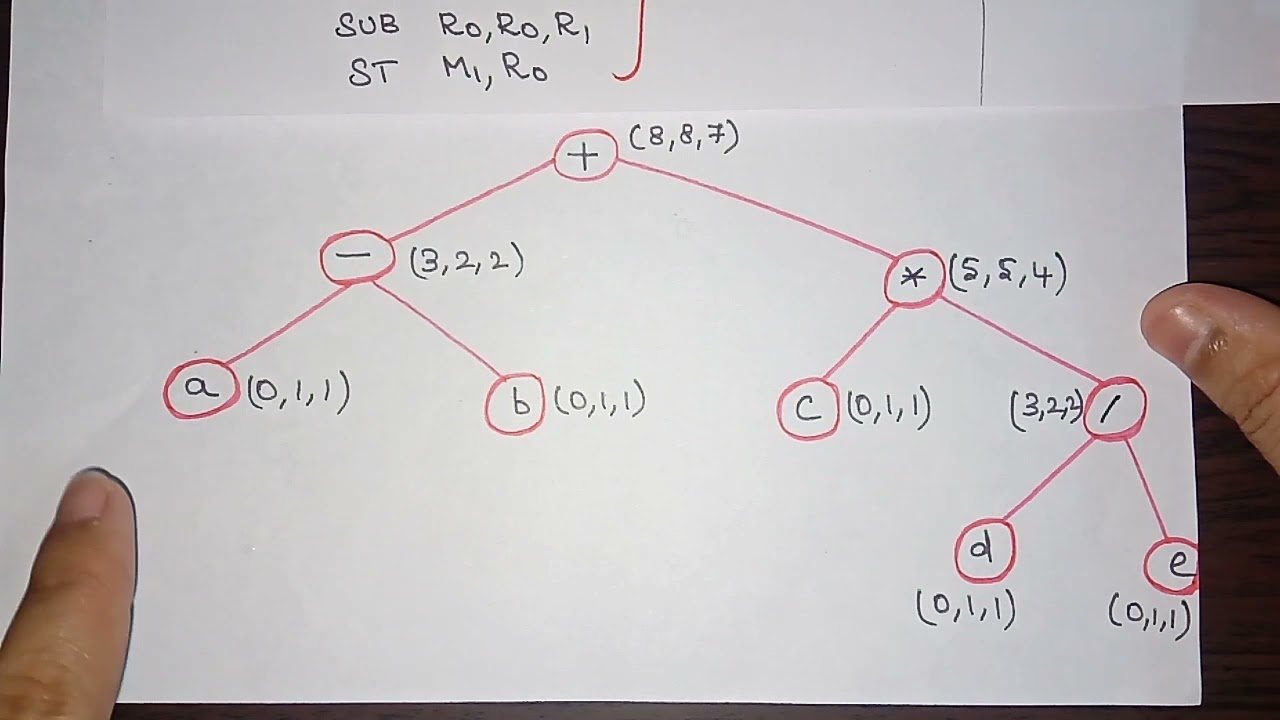 SUB R0, R0, R1
ST M1, R0
+ (8,8,7)
− (3,2,2)
* (5,5,4)
a (0,1,1)
b (0,1,1)
c (0,1,1)
(3,2,2) /
d
e
(0,1,1)
(0,1,1)